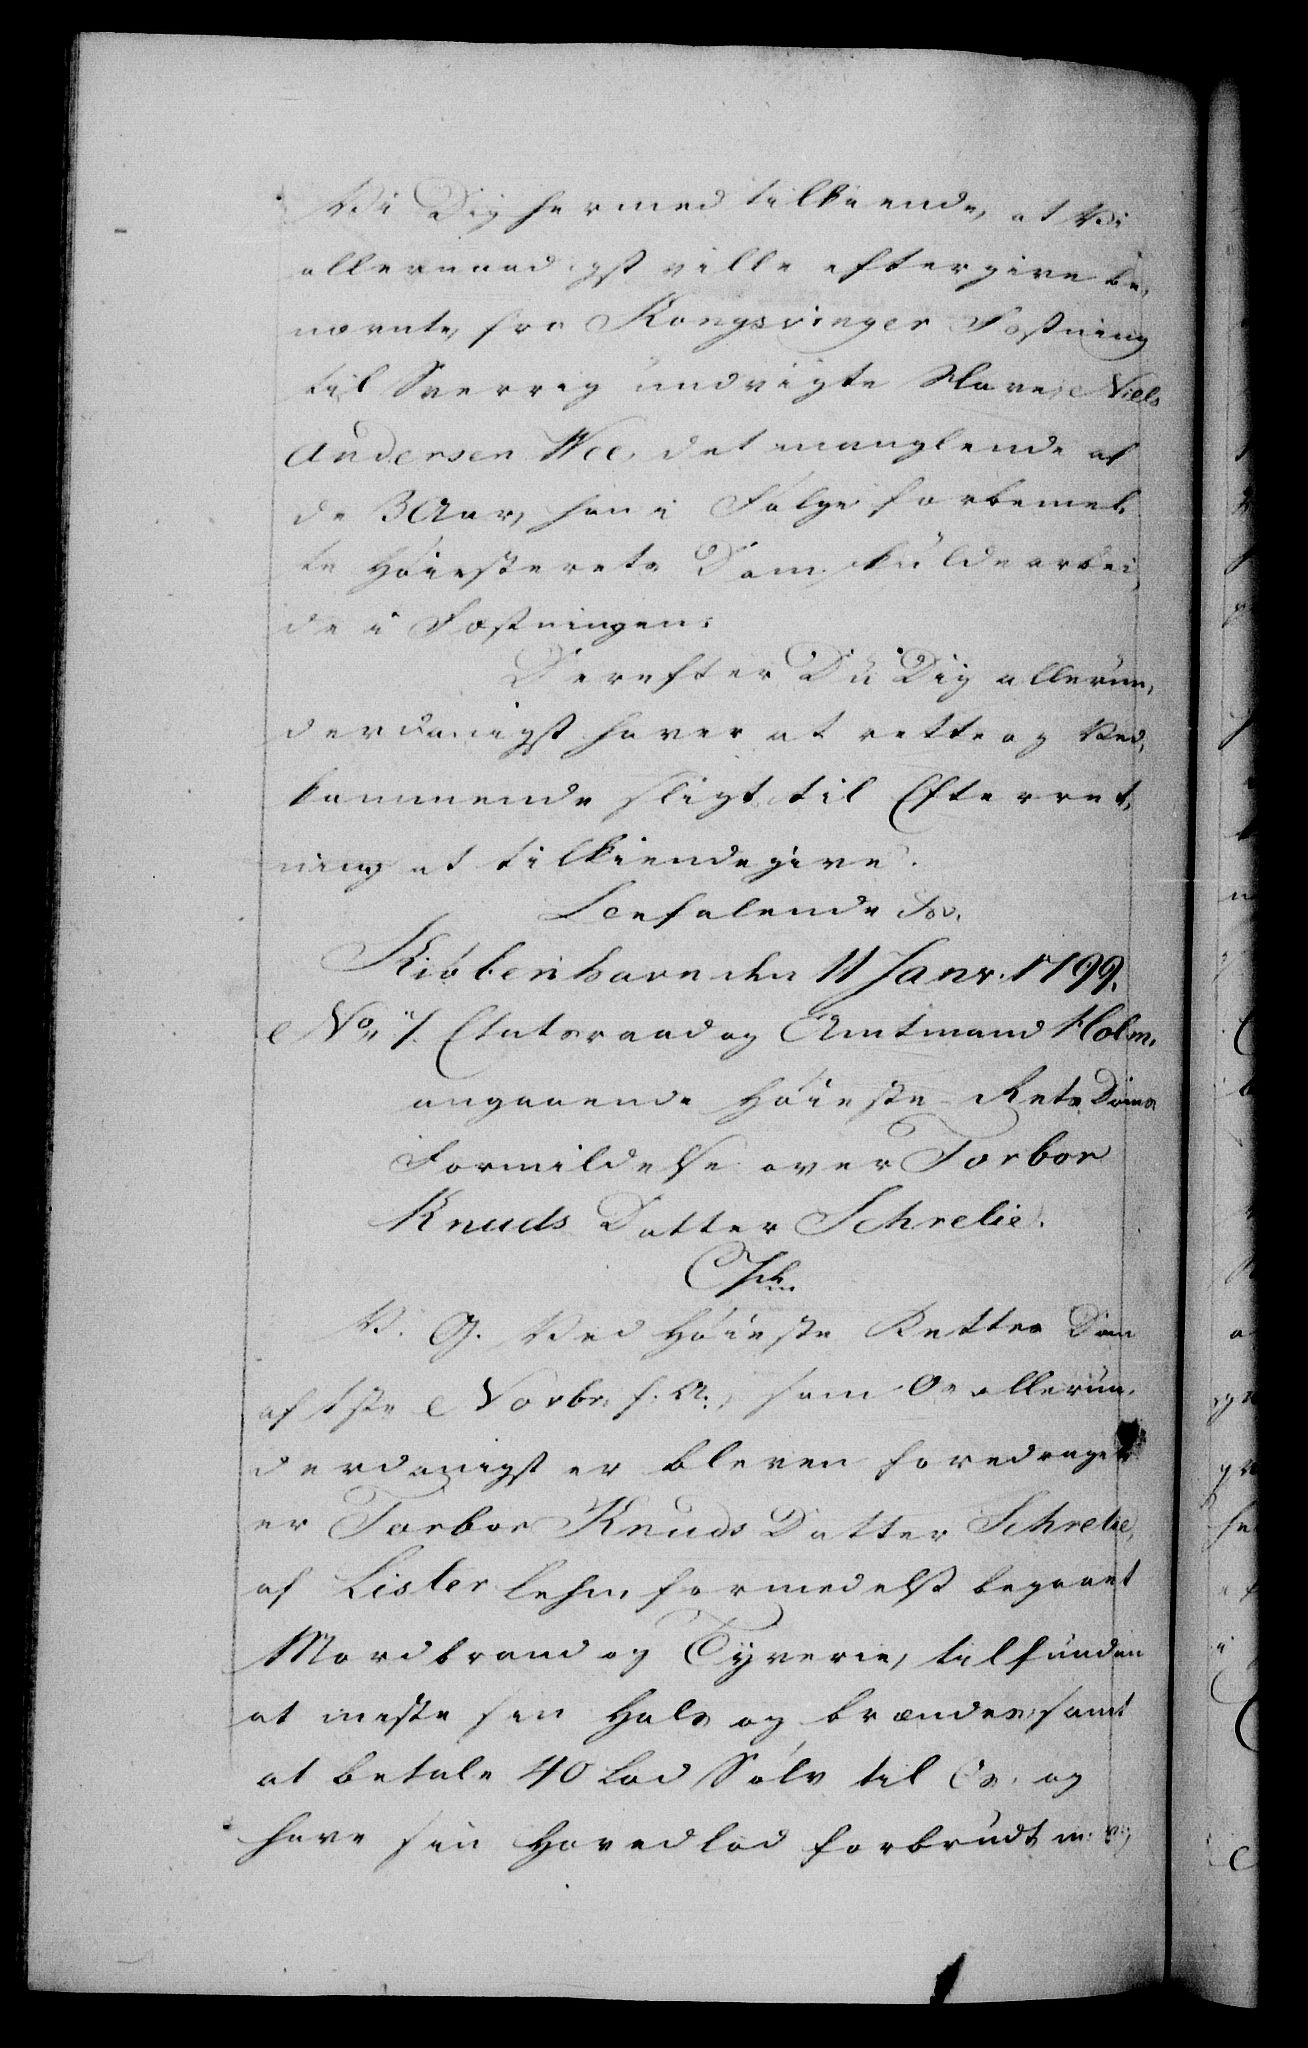 Vi Dig hermed tilkiende, at Vi
allernaadigst ville eftergive be,
nævnte, fra Kongsvinger Fæstning
til Sverrig undvigte Slave, Niels
Andersen Wee, det manglende af
de 3 Aar, han i Følge forbemel,
te Høiesterets Dom skulde arbei,
de i Fæstningen.
Derefter Du Dig allerun,
derdanigst haver at rette og Ved,
kommende sligt til Efterret,
ning at tilkiendegive.
Befalende &c.
Kiøbenhavn den 11 Janr. 1799.
No. 7. Etatsraad og Amtmand Holm,
angaaende Høieste-Rets Doms
Formildelse over Torbor
Knuds Datter Schrelie.
V. G. Ved Høieste Rettes Dom
af 1ste Novbr. f. A., som Os allerun,
derdanigst er bleven foredraget
er Torbor Knuds Datter Schrelie,
af Lister Lehn formedelst begaaet
Mordbrand og Tyverie, tilfunden
at miste sin Hals og brændes, samt
at betale 40 Lod Sølv til Os, og
have sin Hovedlod forbrudt m: v:,